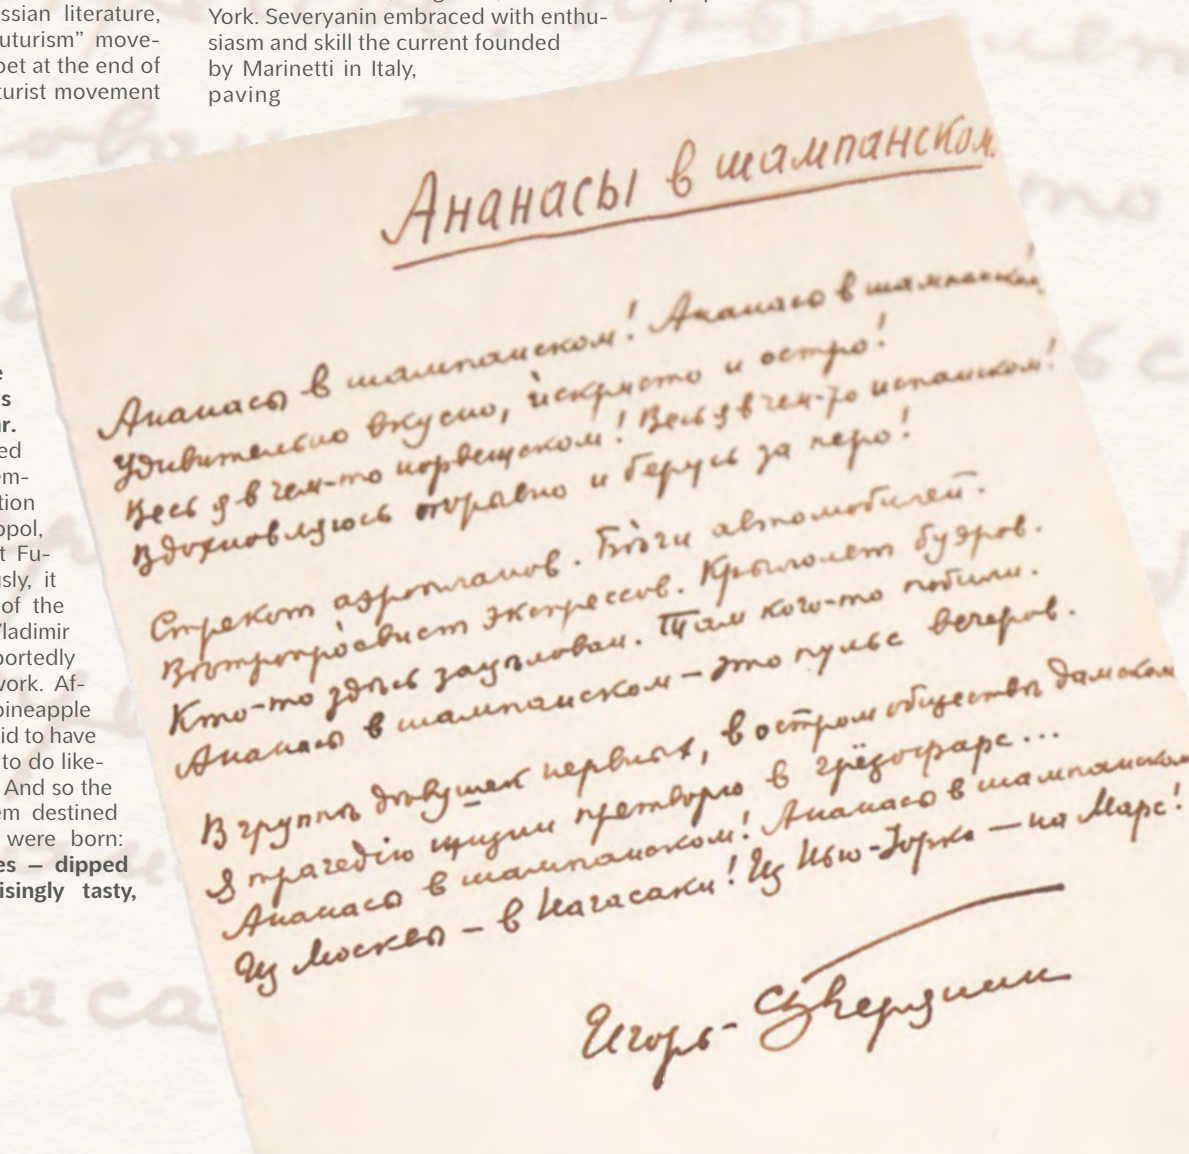 ssian literature,
uturism” move-
oet at the end of
turist movement
York. Severyanin embraced with enthu-
siasm and skill the current founded
by Marinetti in Italy,
paving
e
s
r.
ed
em-
tion
opol,
t Fu-
sly, it
of the
Vladimir
portedly
work. Af-
pineapple
id to have
to do like-
And so the
em destined
were born:
es – dipped
isingly tasty,
Ананасы в шампанском.
Ананасы в шампанском! Ананасы в шампанском!
Удивительно вкусно, искристо и остро!
Весь я в чем-то норвежском! Весь я в чем-то испанском!
Вдохновляюсь порывно и берусь за перо!
Стрекот аэропланов. Бѣги автомобилей.
Вѣтропросвист экспрессов. Крылолет буэров.
Кто-то здѣсь зацѣлован. Там кого-то побили.
Ананасы в шампанском – это пульс вечеров.
В группѣ дѣвушек нервных, в остром обществѣ дамском
Я трагедію жизни претворю в грёзофарс...
Ананасы в шампанском! Ананасы в шампанском!
Из Москвы – в Нагасаки! Из Нью-Йорка – на Марс!
Игорь-Сѣверянин